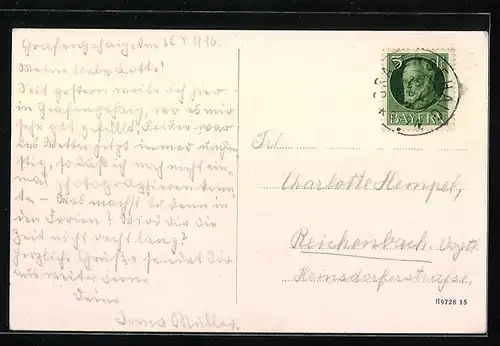 Grafengehaig, den 26.7.1916.
Meine liebe Lotte!
Seit gestern weile ich hier
in Grafengehaig, wo es mir
sehr gut gefällt. Leider war
das Wetter jetzt immer ungün-
stig, sodaß ich noch nicht ein-
mal photographieren konn-
te. - Was machst du denn in
den Ferien? Wird dir die
Zeit nicht recht lang?
Herzliche Grüße sendet dir
aus weiter Ferne
Deine
Irma Müller.
5
BAYERN
Frl.
Charlotte Hempel,
Reichenbach. Vogtl.
Heinsdorferstrasse.
H9728 15